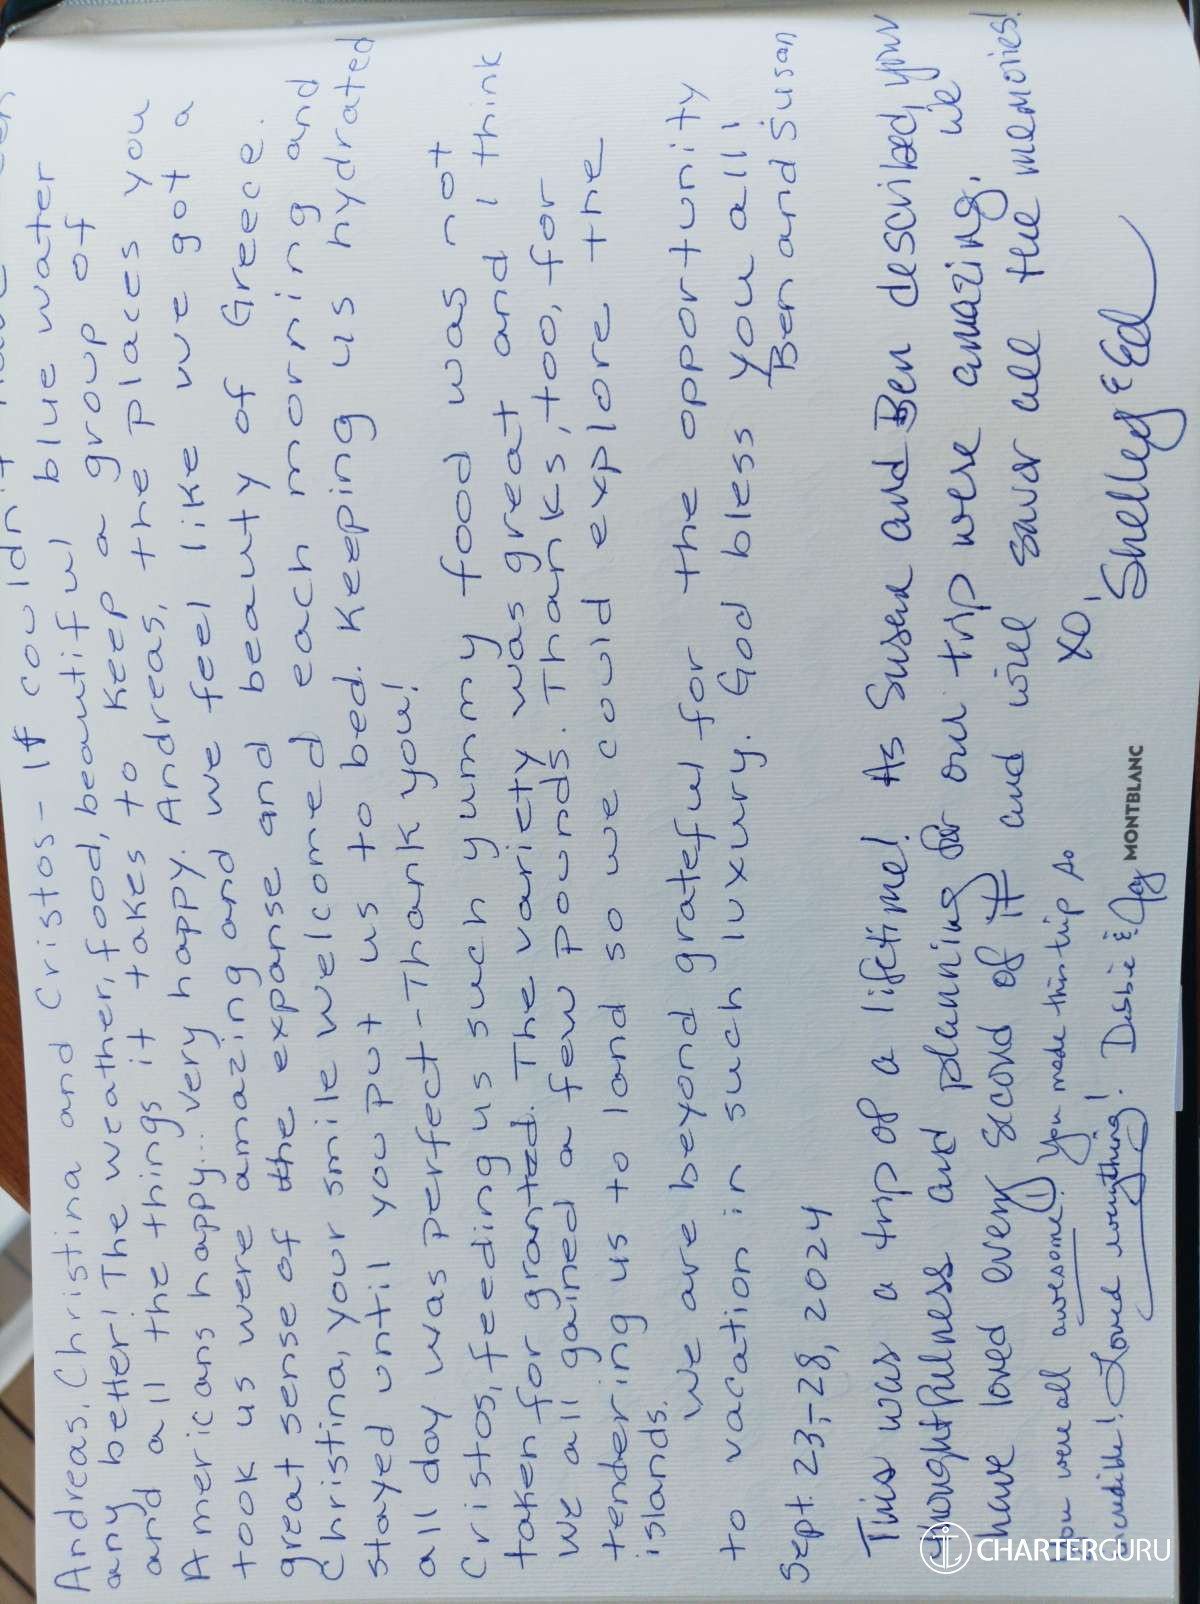 Andreas, Christina and Cristos - It couldn't have been
any better! The weather, food, beautiful blue water
and all the things it takes to keep a group of
Americans happy... very happy. Andreas, the places you
took us were amazing and we feel like we got a
great sense of the expanse and beauty of Greece.
Christina, your smile welcomed each morning and
stayed until you put us to bed. Keeping us hydrated
all day was perfect - Thank you!
Cristos, feeding us such yummy food was not
taken for granted. The variety was great and I think
we all gained a few pounds. Thanks, too, for
tendering us to land so we could explore the
islands.
We are beyond grateful for the opportunity
to vacation in such luxury. God bless you all!
Sept. 23-28, 2024 Ben and Susan
This was a trip of a lifetime! As Susan and Ben described, your
thoughtfulness and planning for our trip were amazing. We
have loved every second of it and will savor all the memories!
XO,
Shelley & Ed
You were all awesome! You made this trip so
incredible! Loved everything! Debbie & Jay
MONTBLANC
CHARTERGURU